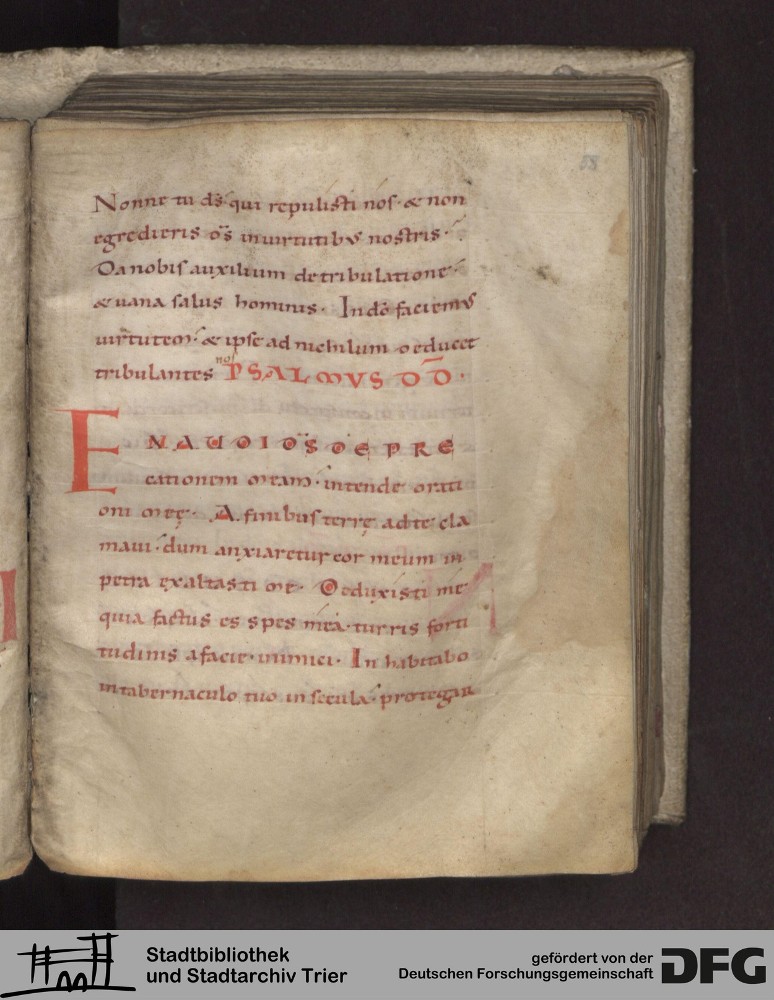 58
Nonne tu ds̄ qui repulisti nos· & non
egredieris ds̄ in uirtutibus nostris·
Da nobis auxilium de tribulatione·
& uana salus hominis· In dō faciemus
uirtutem· & ipse ad nichilum deducet
nos
tribulantes PSALMVS DD̄·
EXAUDI DS̄ DEPRE
cationem meam· intende orati
oni meę· A finibus terrę ad te cla
maui· dum anxiaretur cor meum in
petra exaltasti me· Deduxisti me
quia factus es spes mea· turris forti
tudinis a facie inimici· Inhabitabo
in tabernaculo tuo in secula· protegar
Stadtbibliothek
und Stadtarchiv Trier
gefördert von der
Deutschen Forschungsgemeinschaft
DFG